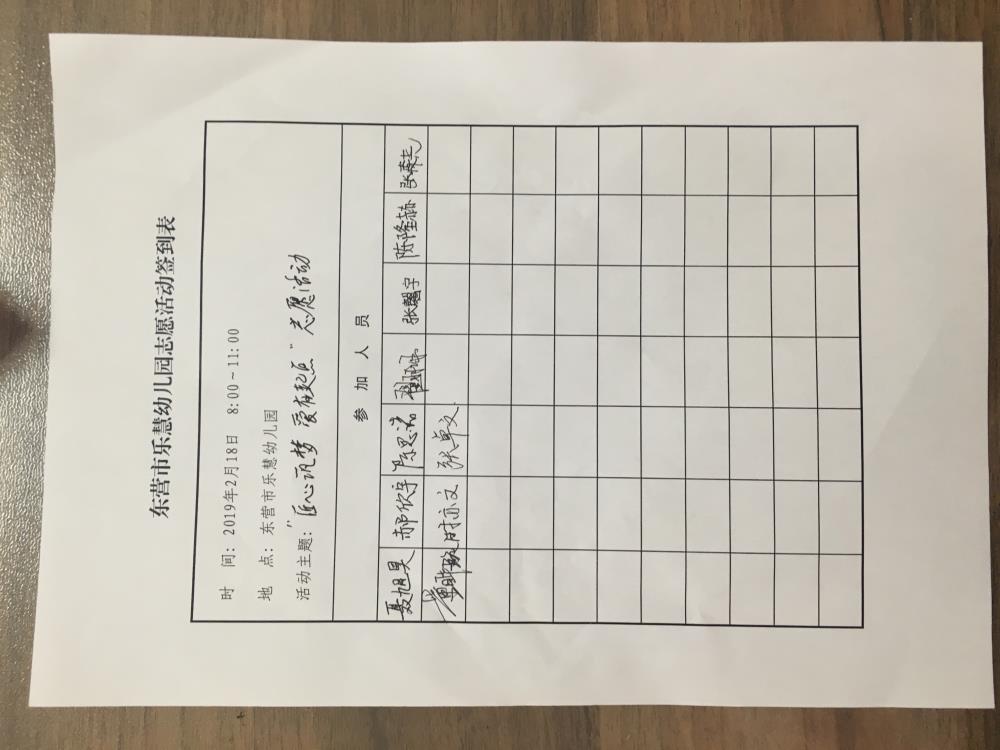 东营市乐慧幼儿园志愿活动签到表
时 间: 2019年2月18日 8:00~11:00
地 点: 东营市乐慧幼儿园
活动主题: "匠心筑梦 爱在起点" 志愿活动
参 加 人 员
聂旭昊 郝欣宇 陈思诺 张翾宇 陈隆赫 张森元
时亦文 张卓文